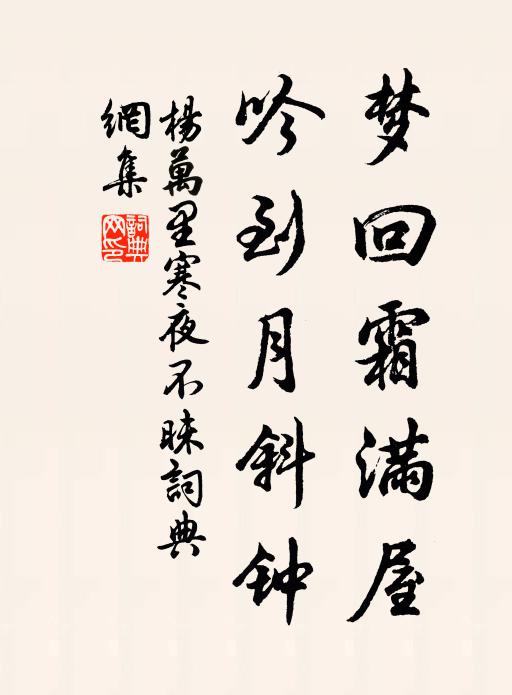 梦回霜满屋
吟到月斜钟
楊萬里寒夜不昧詞典
網集
詞典网印